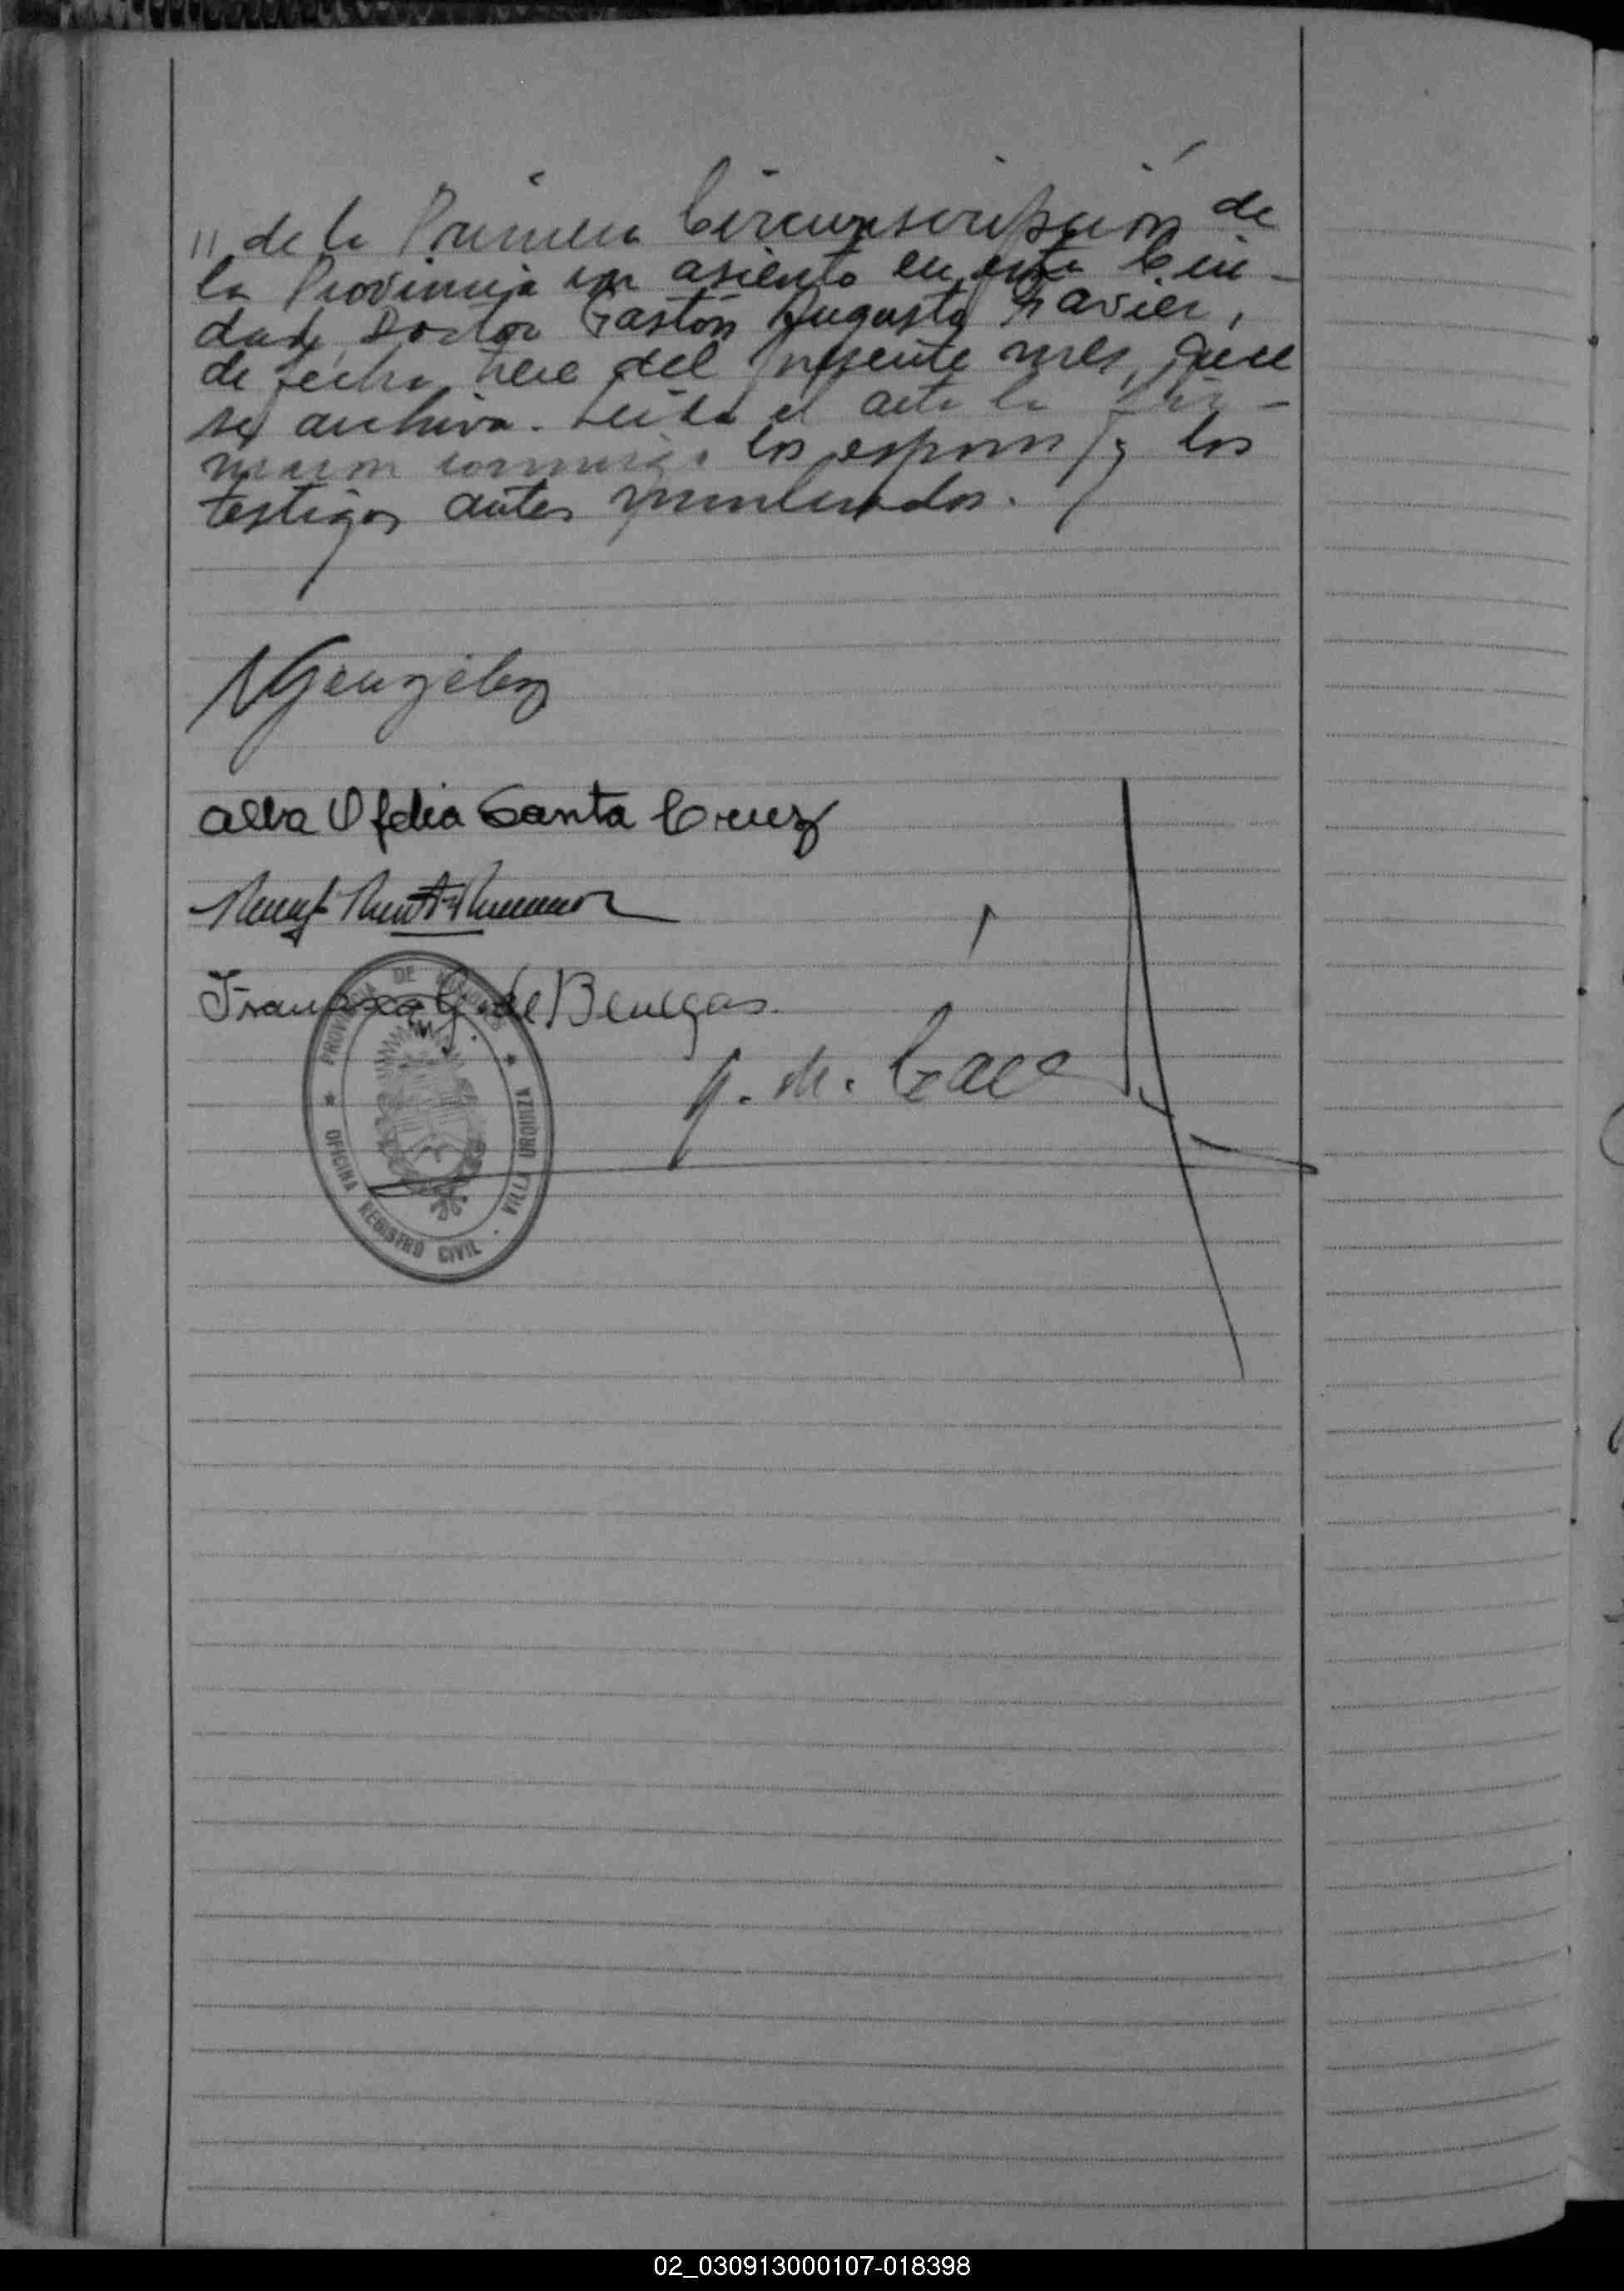 // de la Primera Circunscripción de
la Provincia con asiento en esta Ciu-
dad, Doctor Gastón Augusto Zavier,
de fecha trece del presente mes, que
se archiva. Leida el acta la fir-
maron conmigo los esposos y los
testigos antes nombrados.
NGonzález
Alba Ofelia Santa Cruz
Francisca G. de Benegas.
PROVINCIA DE MISIONES
OFICINA REGISTRO CIVIL - VILLA URQUIZA
02_030913000107-018398